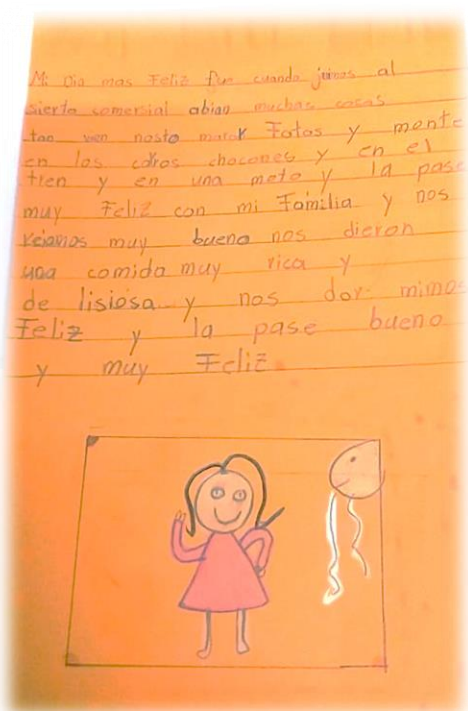 Mi Dia mas Feliz fue cuando juimos al
sierto comersial abian muchas cosas
tan vien nosto marok Fotos y monte
en los carros chocones y en el
tren y en una moto y la pase
muy Feliz con mi Familia y nos
reianos muy bueno nos dieron
una comida muy rica y
de lisiosa y nos dor mimos
Feliz y la pase bueno
y muy Feliz